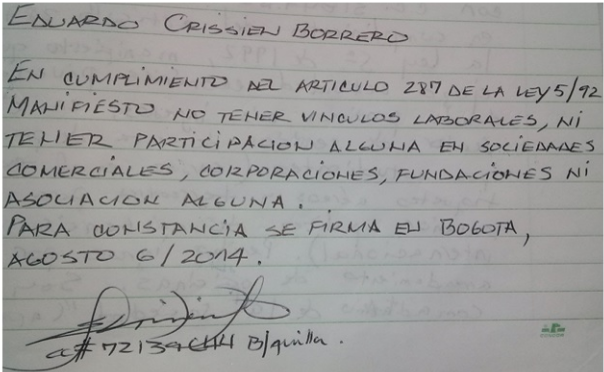 EDUARDO CRISSIEN BORRERO
EN CUMPLIMIENTO DEL ARTICULO 287 DE LA LEY 5/92
MANIFIESTO NO TENER VINCULOS LABORALES, NI
TENER PARTICIPACION ALGUNA EN SOCIEDADES
COMERCIALES, CORPORACIONES, FUNDACIONES NI
ASOCIACION ALGUNA.
PARA CONSTANCIA SE FIRMA EN BOGOTA,
AGOSTO 6/2014.
B/quilla.